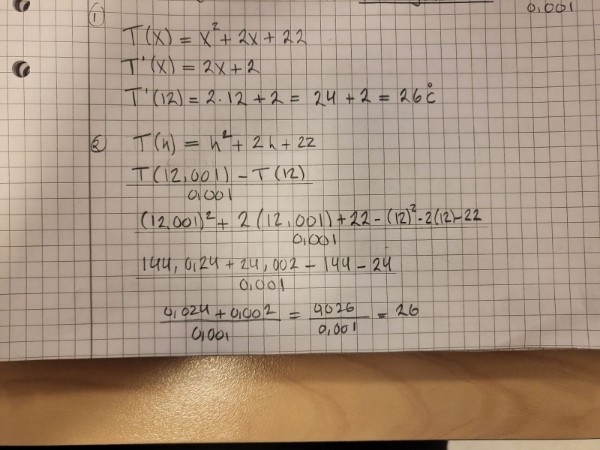 0,001
①
T(x) = x² + 2x + 22
T'(x) = 2x + 2
T'(12) = 2·12 + 2 = 24 + 2 = 26°C
② T(h) = h² + 2h + 22
T(12,001) - T(12)
0,001
(12,001)² + 2(12,001) + 22 - (12)² - 2(12) - 22
0,001
144,0,24 + 24,002 - 144 - 24
0,001
0,024 + 0,002 = 0026 = 26
0,001 0,001